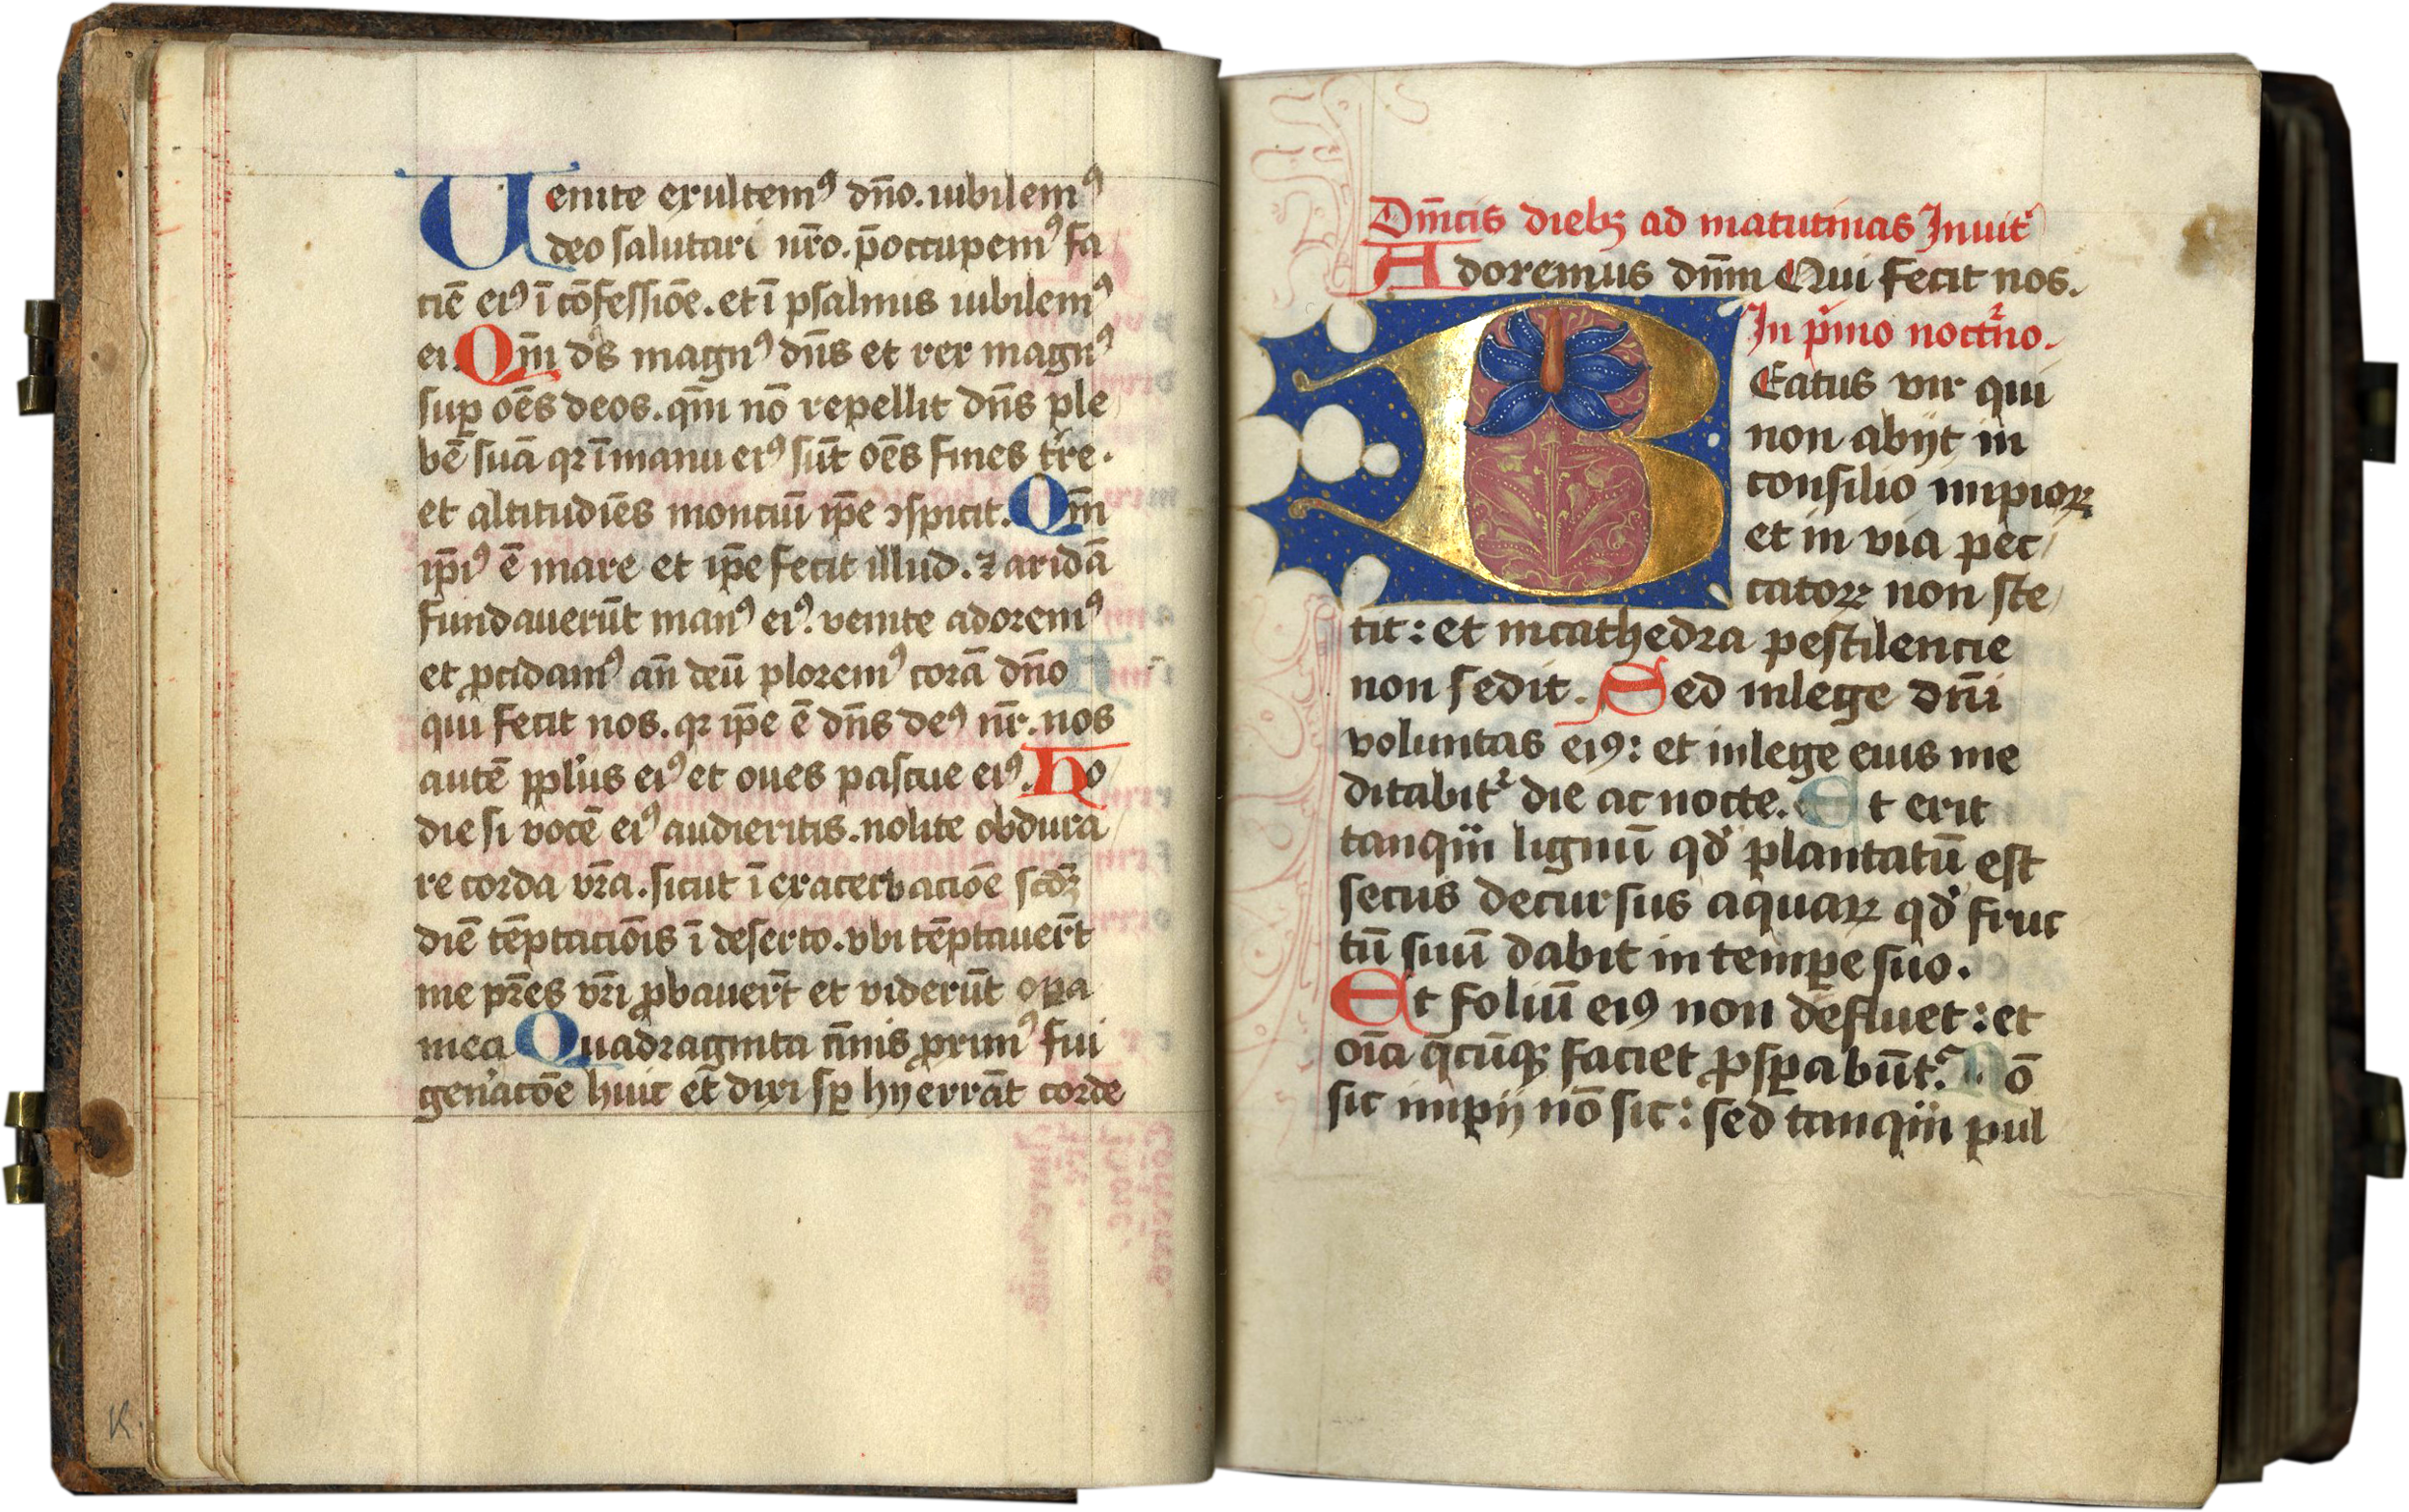 Uenite exultemꝰ dño. iubilemꝰ
deo salutari nr̄o. p̄occupemꝰ fa
ciē eiꝰ ī cōfessiōe. et ī psalmis iubilemꝰ
ei. Qm̄ ds̄ magnꝰ dn̄s et rex magnꝰ
suꝑ oēs deos. qm̄ nō repellit dn̄s ple
bē suā qꝛ ī manu eiꝰ sūt oēs fines tr̄re.
et altitudīēs monciū ip̄e ꝯspicit. Qm̄
ip̄iꝰ ē mare et ip̄e fecit illud. ⁊ aridā
fundauerūt manꝰ eiꝰ. venite adoremꝰ
et ꝓcidamꝰ an̄ deū ploremꝰ corā dño
qui fecit nos. qꝛ ip̄e ē dn̄s deꝰ nr̄. nos
autē ppl̓us eiꝰ et oues pascue eiꝰ. Ho
die si vocē eiꝰ audieritis. nolite obdura
re corda vr̄a. sicut ī exacerbaciōe scd̄ꝫ
diē tēptaciōis ī deserto. vbi tēptauer̄t
me pr̄es vr̄i ꝓbauer̄t et viderūt oꝑa
mea Quadraginta annis ꝓximꝰ fui
gen̓acōe huic et dixi sꝑ hy errāt corde
Dm̄icis diebꝫ ad matutinas Inuit
Adoremus dn̄m Qui fecit nos.
In p̄mo noct̄no.
BEatus vir qui
non abijt in
consilio impioꝝ
et in via pec
catoꝝ non ste
tit: et in cathedra pestilencie
non sedit. Sed in lege dn̄i
voluntas eiꝰ: et in lege eius me
ditabit᷑ die ac nocte. Et erit
tanqm̄ lignū qd̓ plantatū est
secus decursus aquaꝝ qd̓ fruc
tū suū dabit in tempe suo.
Et foliū eiꝰ non defluet: et
oīa q̄cūqꝫ faciet ꝓsꝑabūt᷑. Nō
sic impij nō sic: sed tanqm̄ pul
K